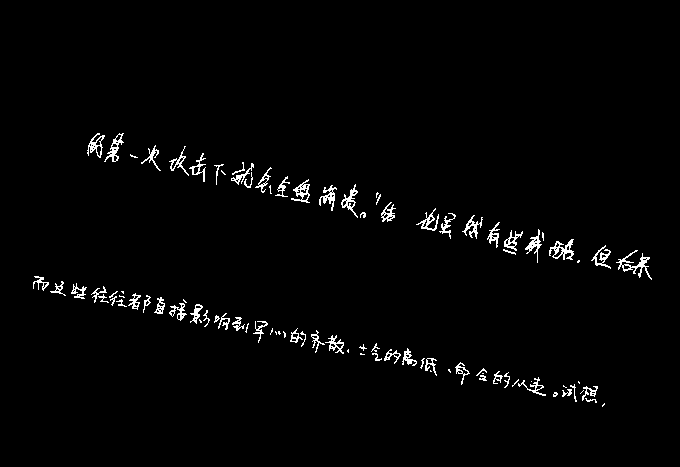 的第一次攻击下就会全盘崩溃。"结 也虽然有些残酷，但后果
而这些往往都直接影响到军心的齐散、士气的高低、命令的从违。试想，